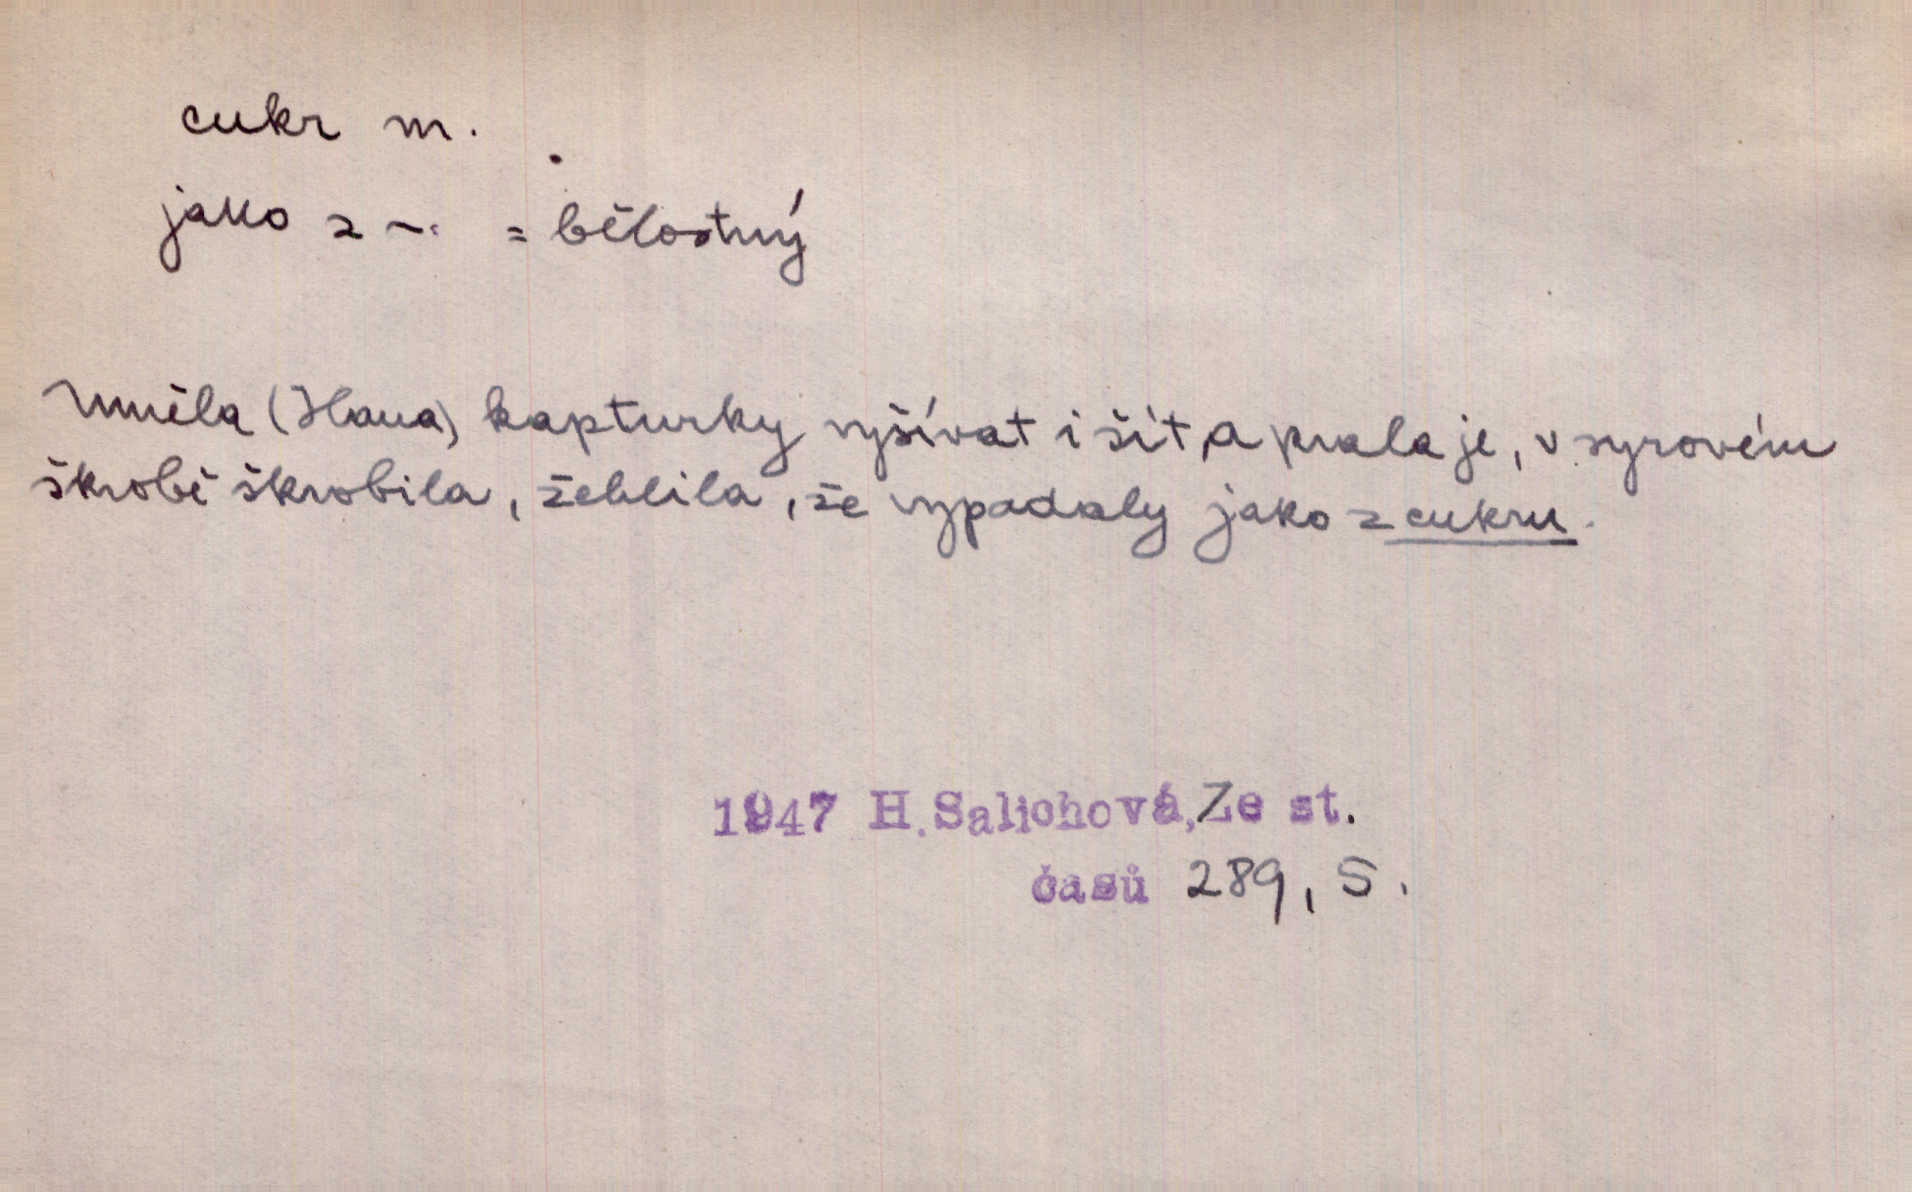 cukr m.
jako z ~ = bělostný
Uměla (Hana) kapturky vyšívat i šít, a prala je, v syrovém
škrobě škrobila, žehlila, že vypadaly jako z cukru.
1947 H. Salichová, Ze st.
časů 289, S.